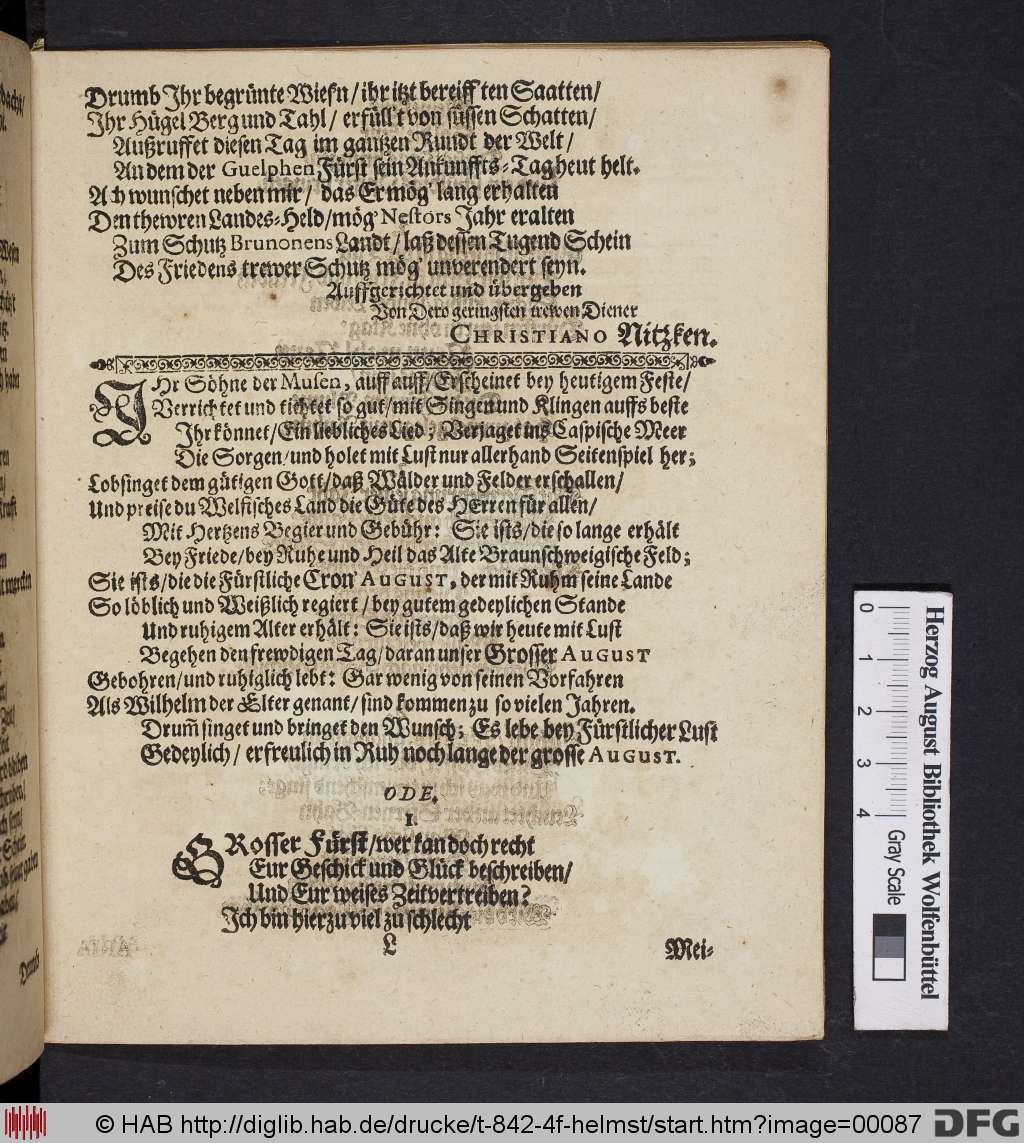 Drumb Ihr begrünte Wiesn / ihr itzt bereifften Saatten /
Ihr Hügel Berg und Tahl / erfüll't von süssen Schatten /
Außruffet diesen Tag im gantzen Rundt der Welt /
An dem der Guelphen Fürst sein Ankunffts-Tag heut helt.
Ach wunschet neben mir / das Er mög' lang erhalten
Den thewren Landes-Held / mög' Nestors Jahr eralten
Zum Schutz Brunonens Landt / laß dessen Tugend Schein
Des Friedens trewer Schutz mög' unverendert seyn.
Auffgerichtet und übergeben
Von Dero geringsten trewen Diener
CHRISTIANO Nitzken.
IHr Söhne der Musen, auff auff / Erscheinet bey heutigem Feste /
Verrichtet und tichtet so gut / mit Singen und Klingen auffs beste
Ihr könnet / Ein liebliches Lied; Verjaget ins Caspische Meer
Die Sorgen / und holet mit Lust nur allerhand Seitenspiel her;
Lobsinget dem gütigen Gott / daß Wälder und Felder erschallen /
Und preise du Welfisches Land die Güte des HErren für allen /
Mit Hertzens Begier und Gebühr: Sie ists / die so lange erhält
Bey Friede / bey Ruhe und Heil das Alte Braunschweigische Feld;
Sie ists / die die Fürstliche Cron AUGUST, der mit Ruhm seine Lande
So löblich und Weißlich regiert / bey gutem gedeylichen Stande
Und ruhigem Alter erhält: Sie ists / daß wir heute mit Lust
Begehen den frewdigen Tag / daran unser Grosser AUGUST
Gebohren / und ruhiglich lebt: Gar wenig von seinen Vorfahren
Als Wilhelm der Elter genant / sind kommen zu so vielen Jahren.
Drum̃ singet und bringet den Wunsch; Es lebe bey Fürstlicher Lust
Gedeylich / erfreulich in Ruh noch lange der grosse AUGUST.
ODE.
I.
GRosser Fürst / wer kan doch recht
Eur Geschick und Glück beschreiben /
Und Eur weises Zeitvertreiben?
Ich bin hierzu viel zu schlecht
L Mei-
Herzog August Bibliothek Wolfenbüttel
0 1 2 3 4 Gray Scale
© HAB http://diglib.hab.de/drucke/t-842-4f-helmst/start.htm?image=00087
DFG